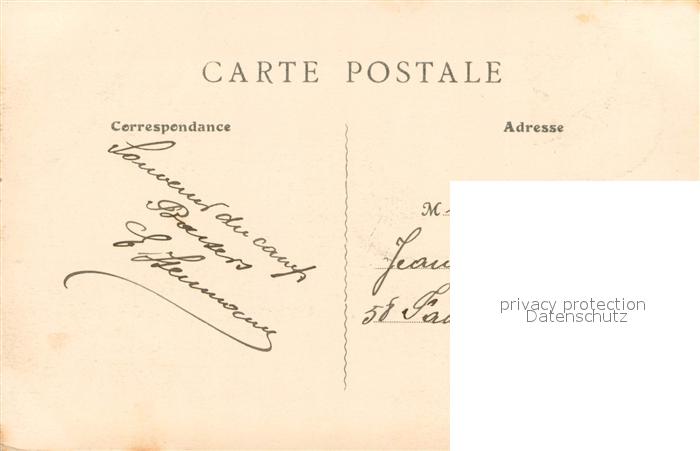 CARTE POSTALE
Correspondance
Adresse
Souvenir du camp
Baisers
E Heumann
M
Jean
58 Fa
privacy protection
Datenschutz